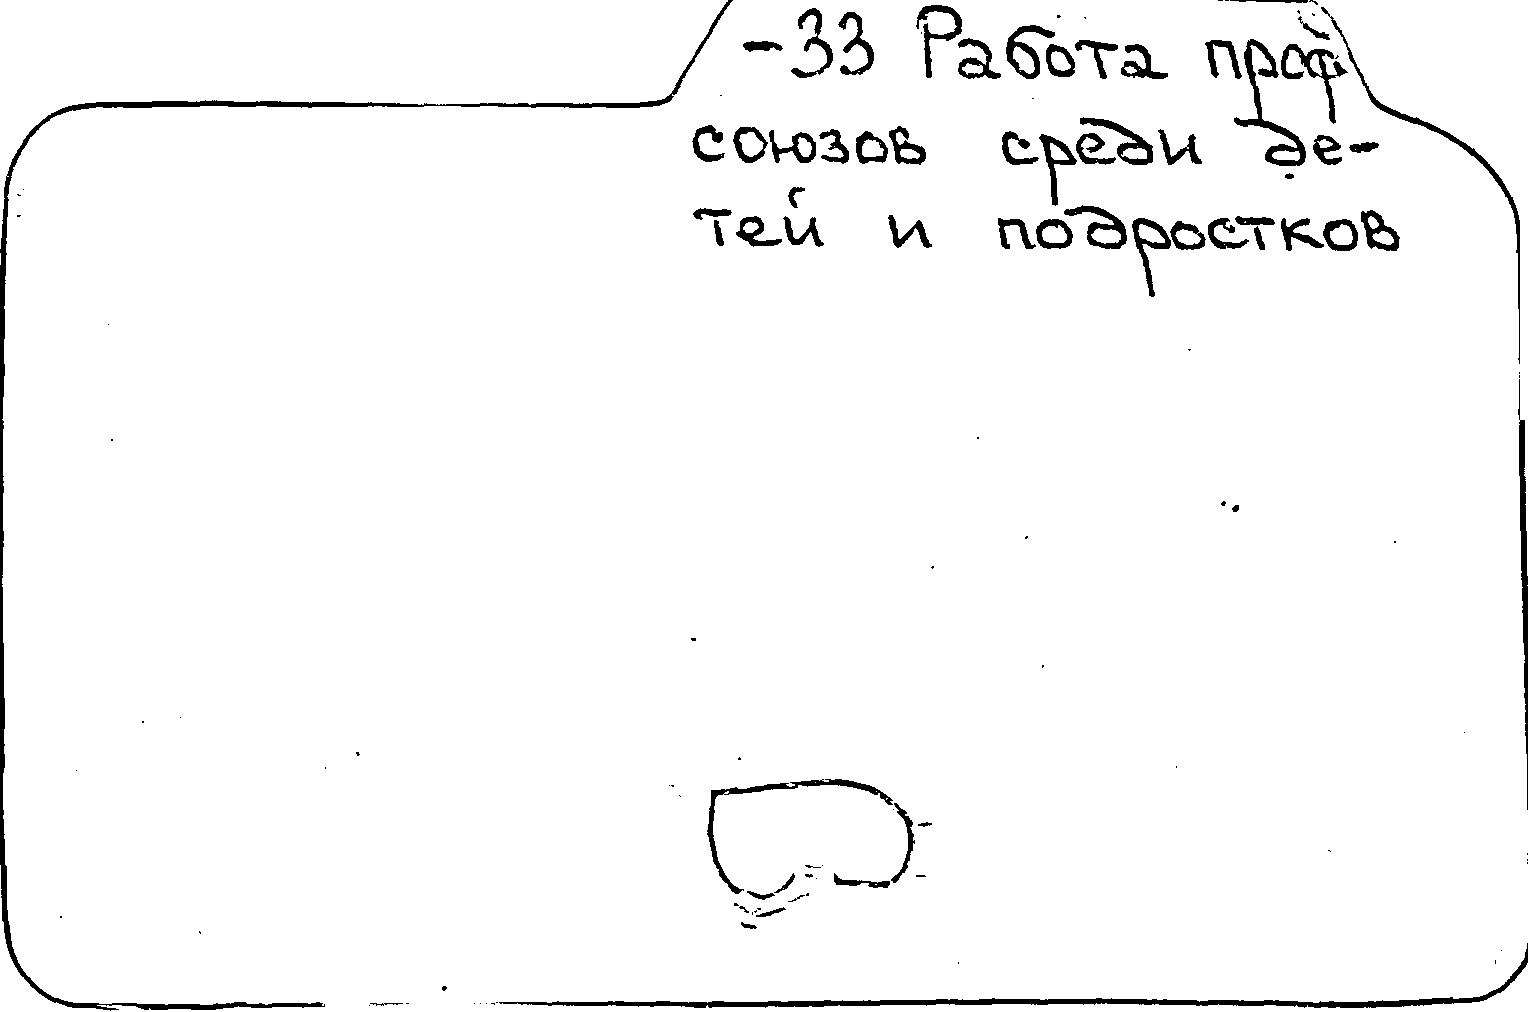 -33 Работа проф
союзов среди де-
тей и подростков